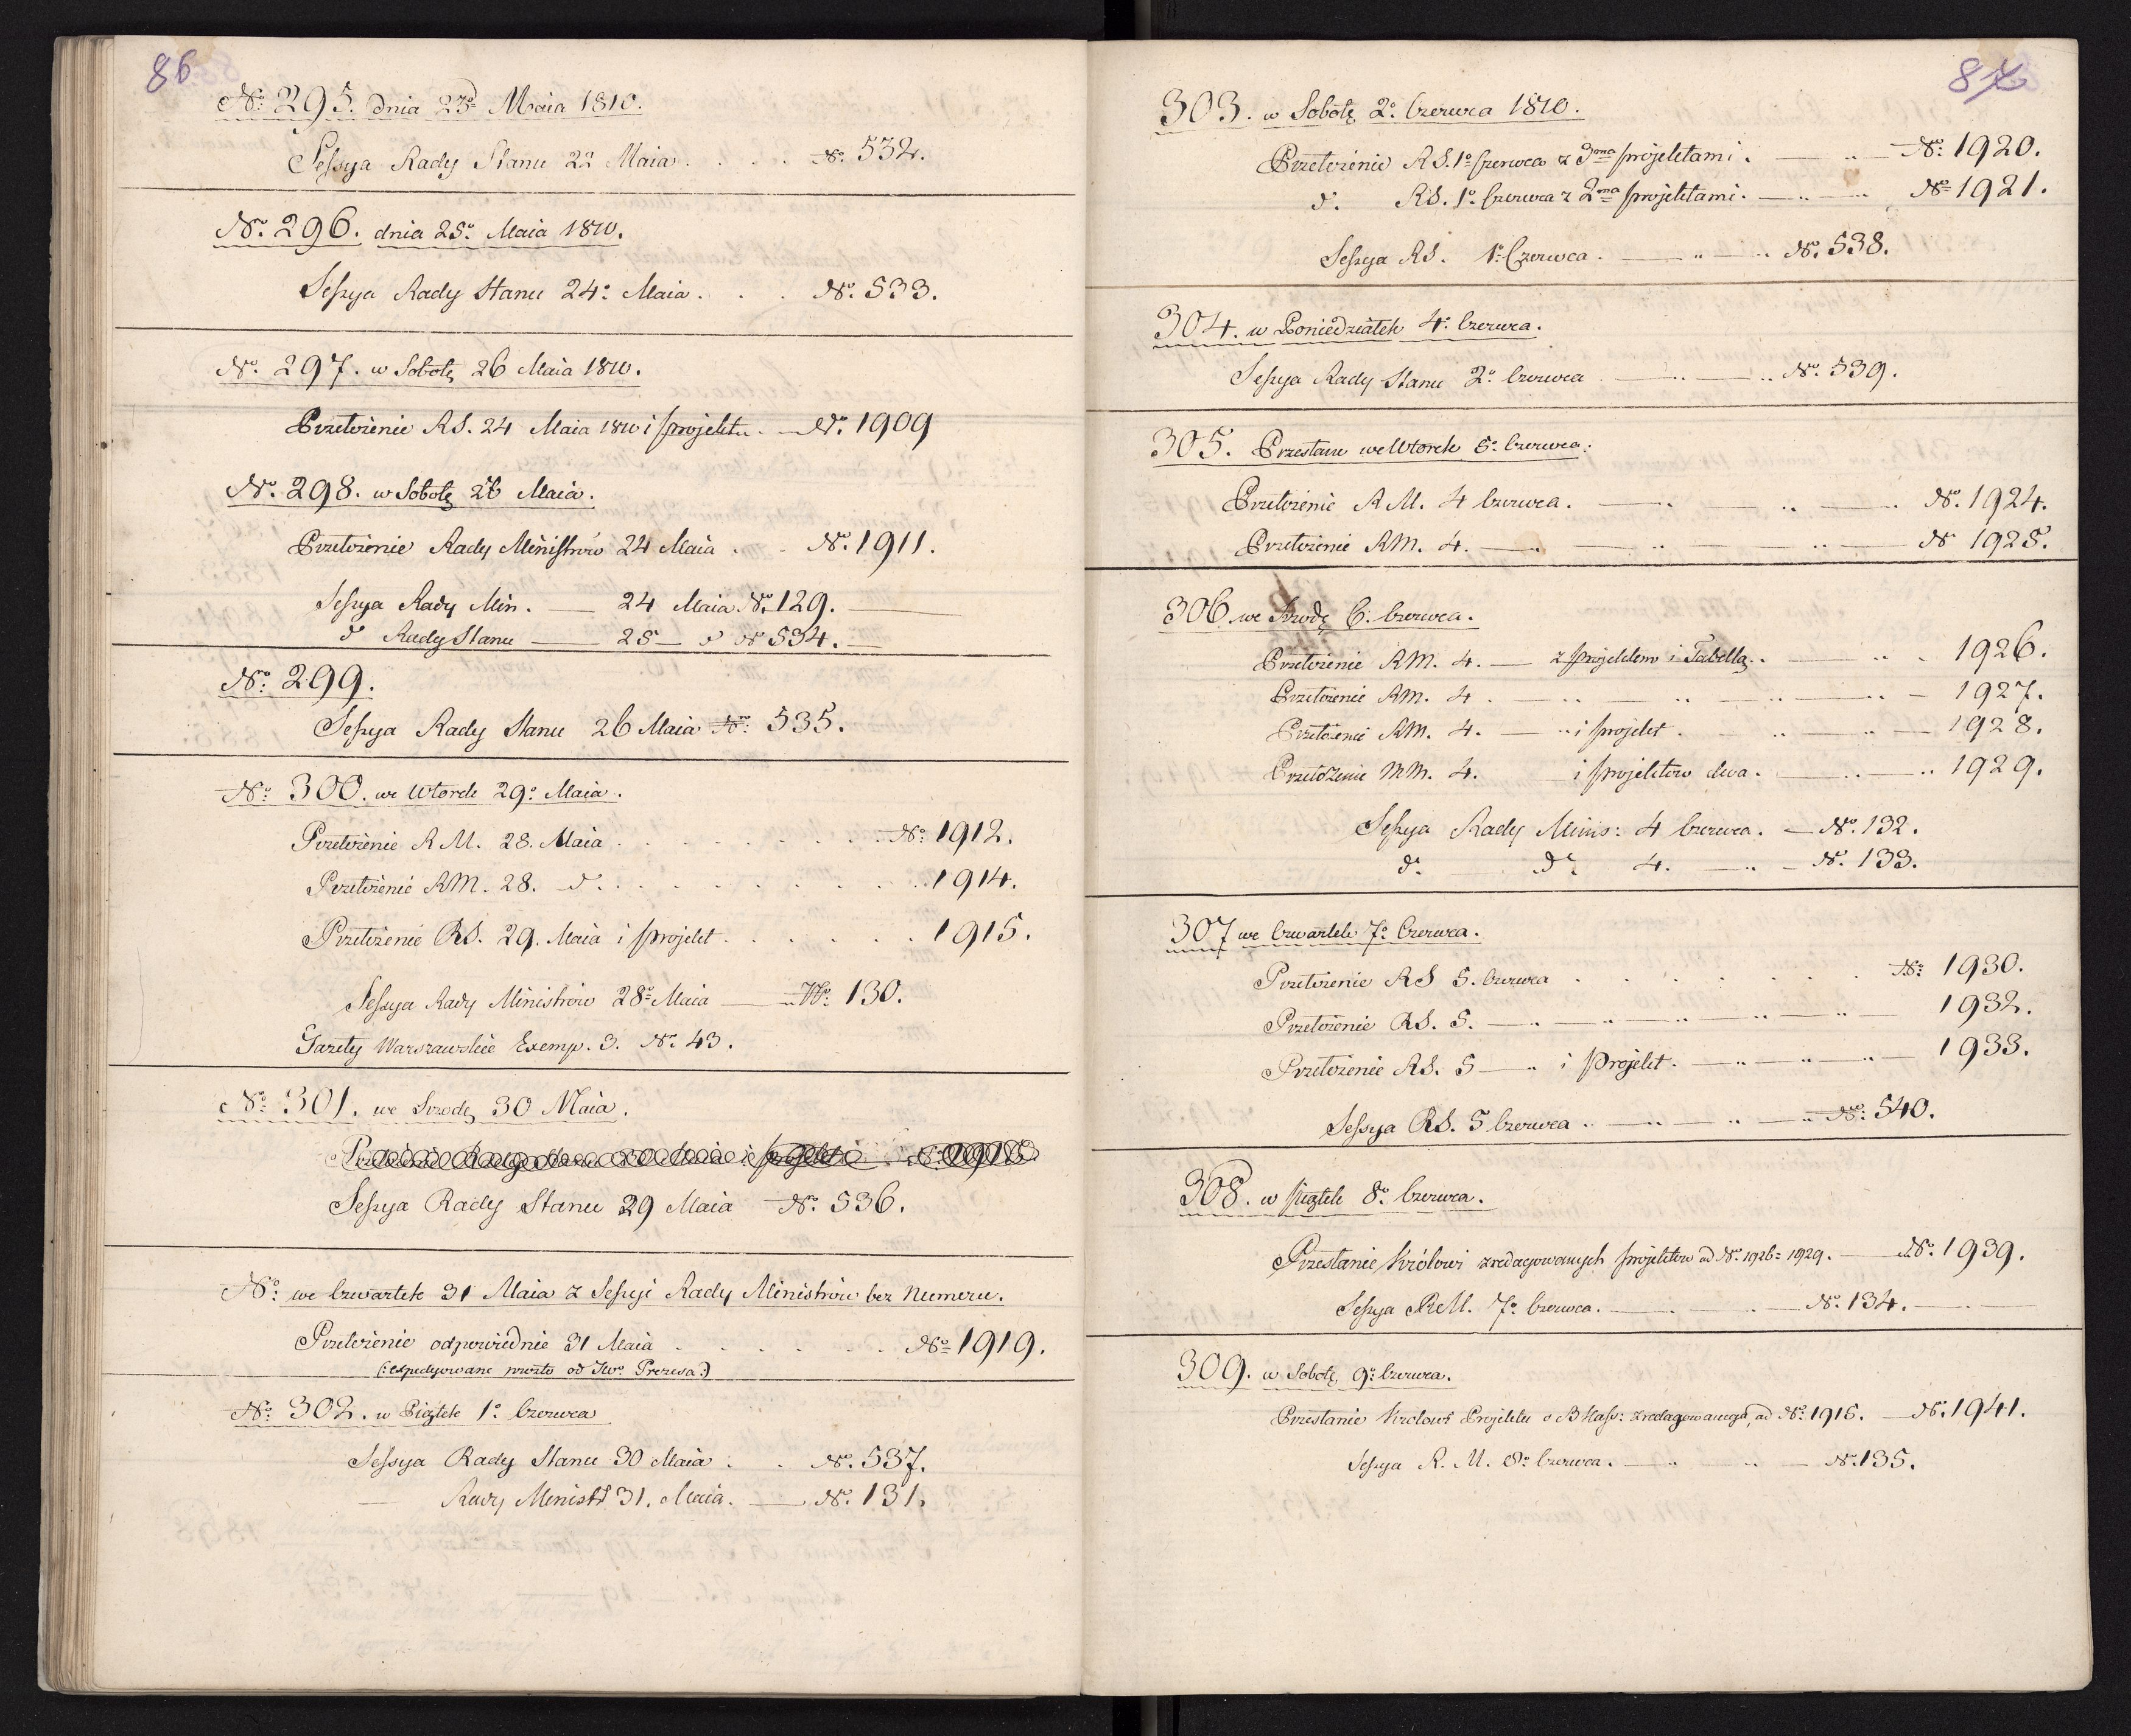 86
No. 295. dnia 23o Maia 1810.
Sessya Rady Stanu 22 Maia . . . . No. 532.
No. 296. dnia 25o Maia 1810.
Sessya Rady Stanu 24o Maia . . . No. 533.
No. 297. w Sobotę 26 Maia 1810.
Przełożenie RS. 24 Maia 1810 i projektu. — No. 1909
No. 298. w Sobotę 26 Maia.
Przełożenie Rady Ministrów 24 Maia . . No. 1911.
Sessya Rady Min. — 24 Maia No. 129. —
do Rady Stanu — 25 — do No 534. —
No. 299.
Sessya Rady Stanu 26 Maia No. 535.
No. 300. we Wtorek 29o Maia.
Przełożenie R M. 28. Maia . . . . . . . . No. 1912.
Przełożenie RM. 28. do. . . . . . . . . . 1914.
Przełożenie RS. 29. Maia i projekt . . . . . . 1915.
Sessya Rady Ministrów 28o Maia — No. 130.
Gazety Warszawskie Exemp. 3. No. 43.
No. 301. we Srodę 30 Maia.
Sessya Rady Stanu 29 Maia No. 536.
No. we Czwartek 31 Maia z Sessyi Rady Ministrów bez Numeru.
Przełożenie odpowiednie 31 Maia . . . . . . No. 1919.
(:expedyowane prosto od JWo Prezesa:)
No. 302. w Piątek 1o Czerwca
Sessya Rady Stanu 30 Maia . . No. 537.
— Rady Minist 31. Maia. — No. 131.
303. w Sobotę 2o Czerwca 1810.
Przełożenie RS. 1o Czerwca z 3ma projektami. — No. 1920.
do. RS. 1o Czerwca z 2ma projektami. — No. 1921.
Sessya RS. 1o Czerwca. — No. 538.
304. w Poniedziałek 4o Czerwca.
Sessya Rady Stanu 2o Czerwca — No. 539.
305. Przesłane we Wtorek 5o Czerwca:
Przełożenie R M. 4 Czerwca. — No. 1924.
Przełożenie RM. 4. — No 1925.
306. we Srodę 6. Czerwca.
Przełożenie RM. 4. — z projektem i Tabellą. — 1926.
Przełożenie RM. 4. — 1927.
Przełożenie RM. 4. — i projekt. — 1928.
Przełożenie RM. 4. i projektow dwa. — 1929.
Sessya Rady Minis: 4 Czerwca. — No. 132.
do. do. 4. — No. 133.
307 we Czwartek 7o Czerwca.
Przełożenie RS 5. Czerwca . . . . . . . No. 1930.
Przełożenie RS. 5. — 1932.
Przełożenie RS. 5 — i Projekt. — 1933.
Sessya RS. 5 Czerwca — No. 540.
308. w piątek 8o Czerwca.
Przesłanie Królowi zredagowanych projektow ad No. 1926 = 1929. — No. 1939.
Sessya RM. 7o Czerwca. — No. 134. —
309. w Sobotę 9o Czerwca.
Przesłanie Krolowi Projektu o zredagowanego, ad No. 1915. — No. 1941.
Sessya R. M. 8o Czerwca. — No. 135.